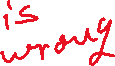 is
wrong